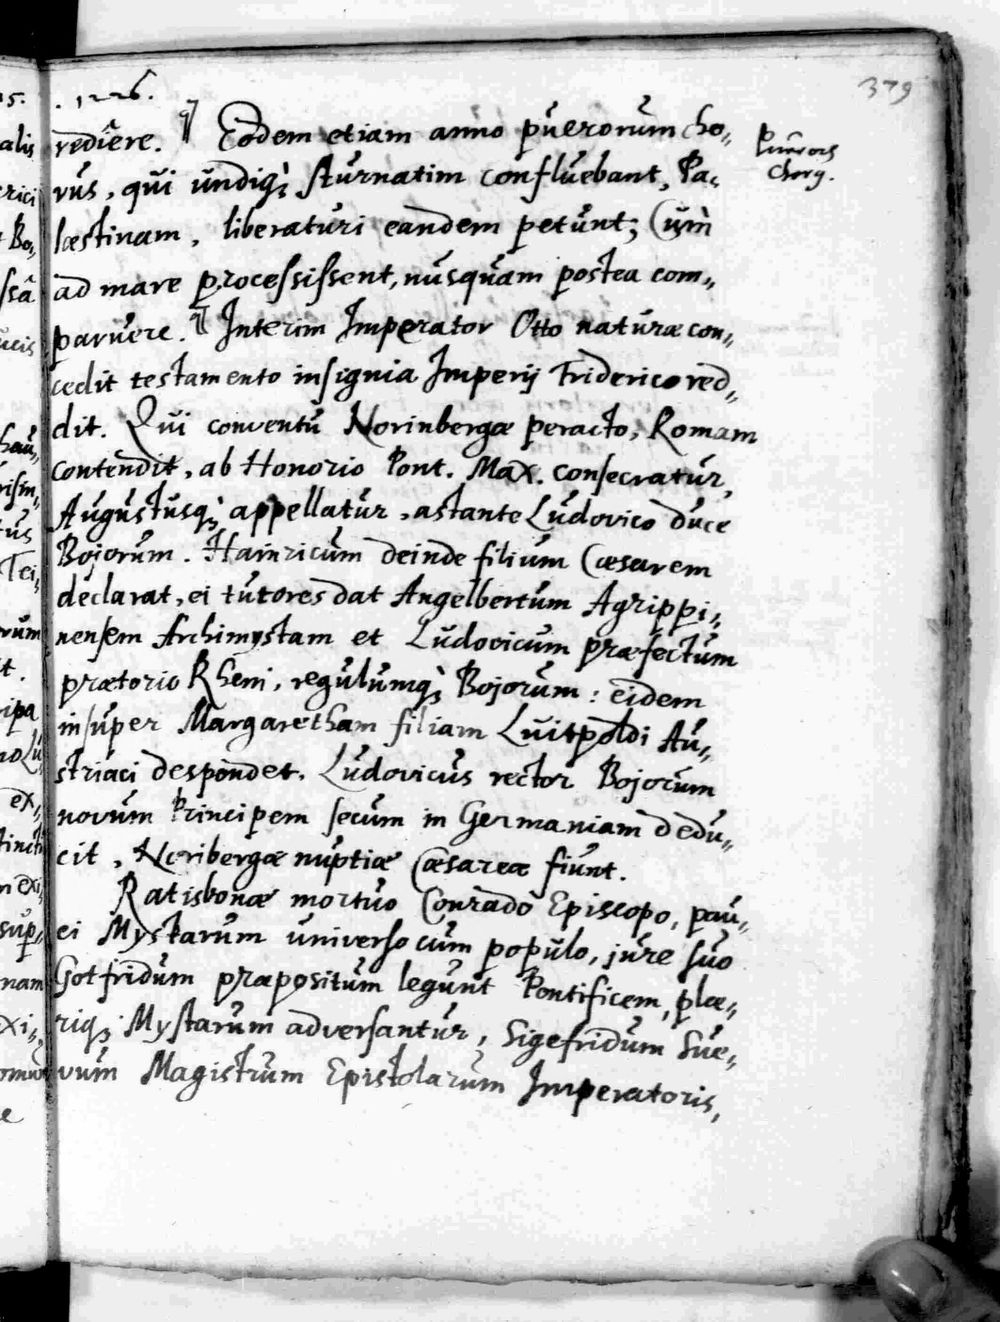 379
. 1226.
rediêre. ¶ Eodem etiam anno puerorum cho„
rus, qui undiq; sturnatim confluebant, Pa„
læstinam, liberaturi eandem petunt; Cum
ad mare processissent, nusquam postea com„
paruere. ¶ Interim Imperator Otto naturæ con„
cedit testamento insignia Imperij Friderico red„
dit. Qui conventu Norinbergæ peracto, Romam
contendit, ab Honorio Pont. Max. consecratur,
Augustusq; appellatur, astante Ludovico duce
Bojorum. Hainricum deinde filium Cæsarem
declarat, ei tutores dat Angelbertum Agrippi„
nensem Archimystam et Ludovicum præfectum
prætorio Rheni, regulumq; Bojorum: eidem
insuper Margaretham filiam Luitpoldi Au„
striaci despondet. Ludovicus rector Bojorum
novum Principem secum in Germaniam dedu„
cit, Noribergæ nuptiæ Cæsareæ fiunt.
Ratisbonæ mortuo Conrado Episcopo, pau„
ei Mystarum universo cum populo, jure suo
Gotfridum præpositum legunt Pontificem, plæ„
riq; Mystarum adversantur, Sigefridum Sue„
vum Magistrum Epistolarum Imperatoris,